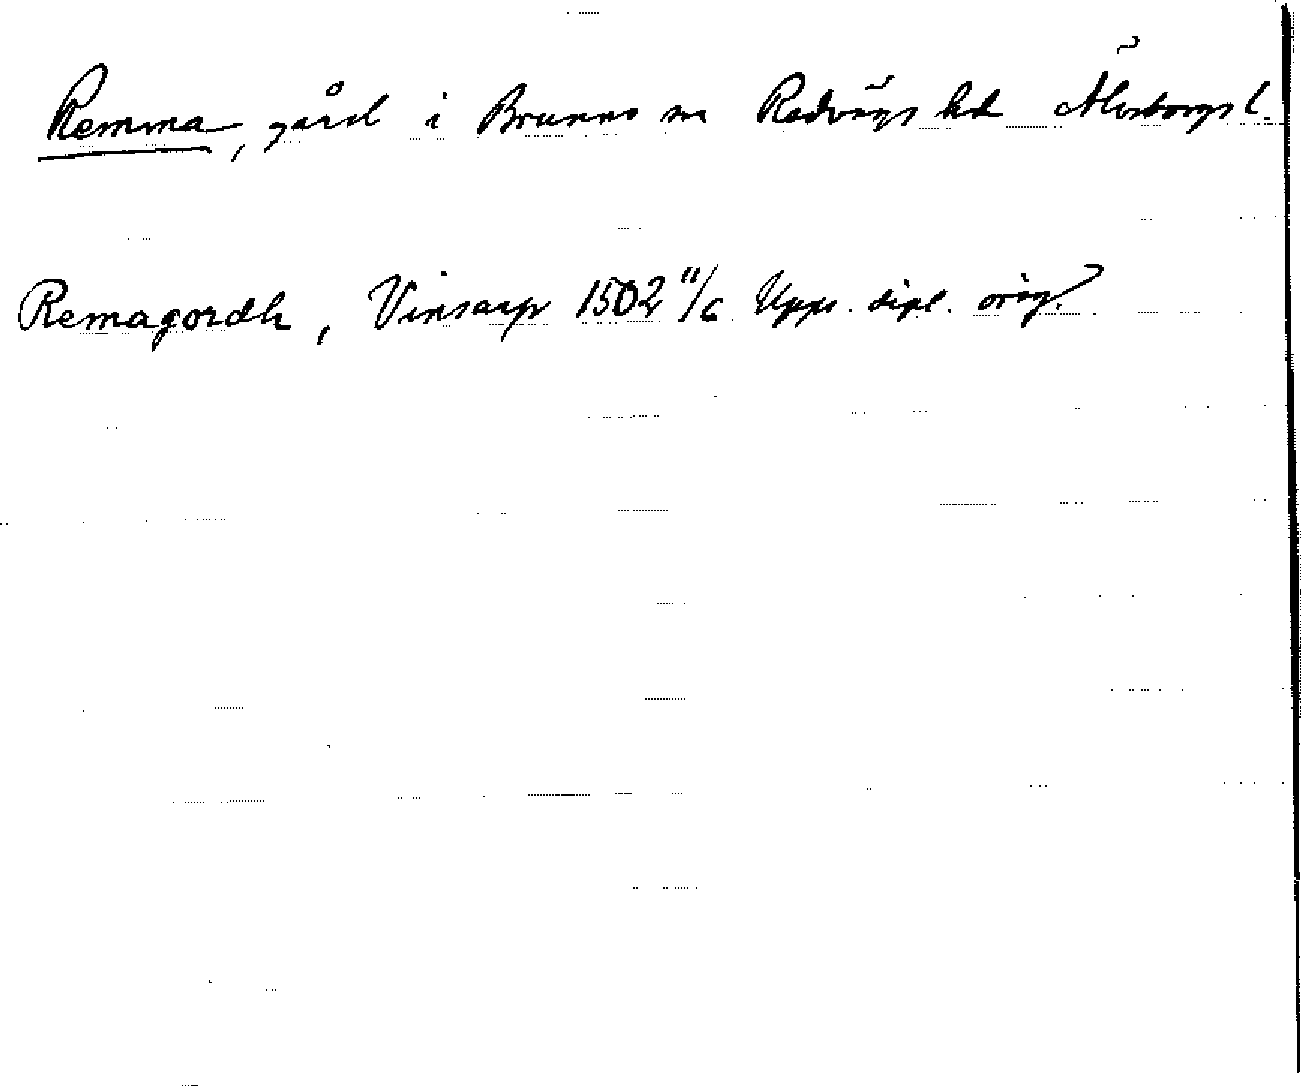 Remma, gård i Brunns sn Redvägs hd Älvsborgs l.
Remagordh, Vinsarp 1502 11/6 Upps. dipl. orig.